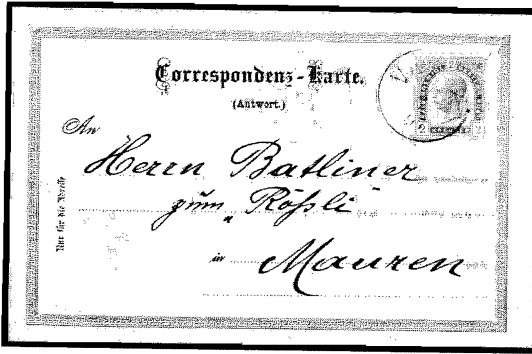 Correspondenz-Karte.
(Antwort.)
An
Herrn Batliner
zum „Rößli"
in Mauren
Nur für die Adresse
2 KREUZER 2